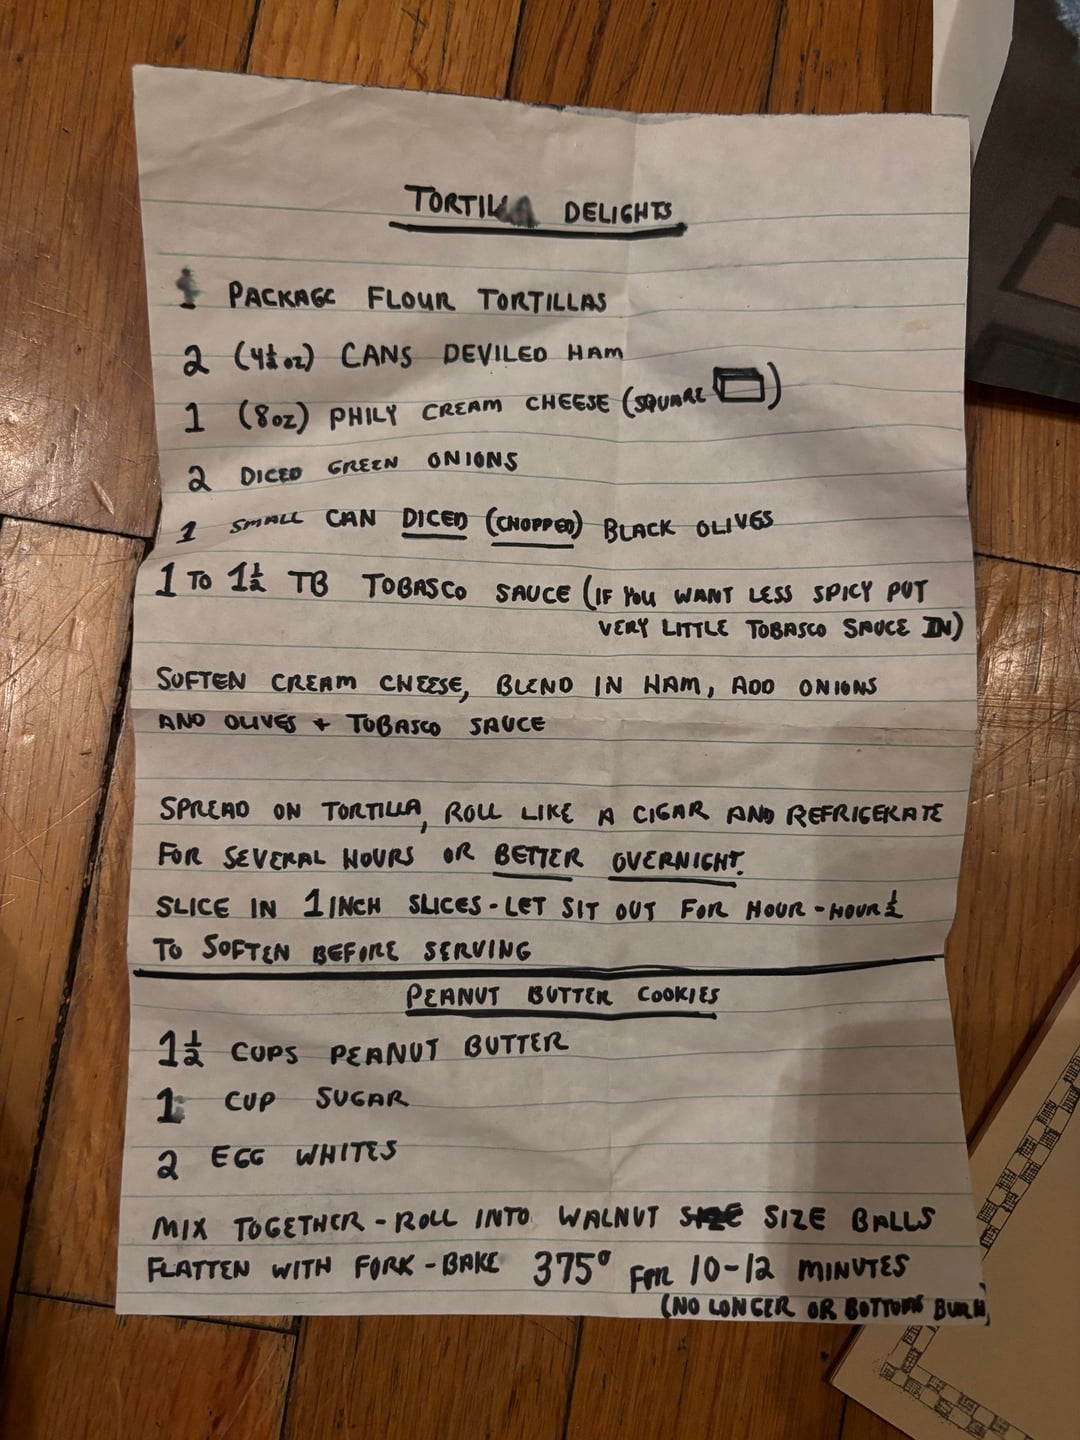 TORTILLA DELIGHTS
1 PACKAGE FLOUR TORTILLAS
2 (4½ oz) CANS DEVILED HAM
1 (8oz) PHILY CREAM CHEESE (SQUARE )
2 DICED GREEN ONIONS
1 SMALL CAN DICED (CHOPPED) BLACK OLIVES
1 TO 1½ TB TOBASCO SAUCE (IF YOU WANT LESS SPICY PUT
VERY LITTLE TOBASCO SAUCE IN)
SOFTEN CREAM CHEESE, BLEND IN HAM, ADD ONIONS
AND OLIVES + TOBASCO SAUCE
SPREAD ON TORTILLA, ROLL LIKE A CIGAR AND REFRIGERATE
FOR SEVERAL HOURS OR BETTER OVERNIGHT.
SLICE IN 1 INCH SLICES - LET SIT OUT FOR HOUR - HOUR ½
TO SOFTEN BEFORE SERVING
PEANUT BUTTER COOKIES
1½ CUPS PEANUT BUTTER
1 CUP SUGAR
2 EGG WHITES
MIX TOGETHER - ROLL INTO WALNUT SIZE BALLS
FLATTEN WITH FORK - BAKE 375° FOR 10-12 MINUTES
(NO LONGER OR BOTTOMS BURN)